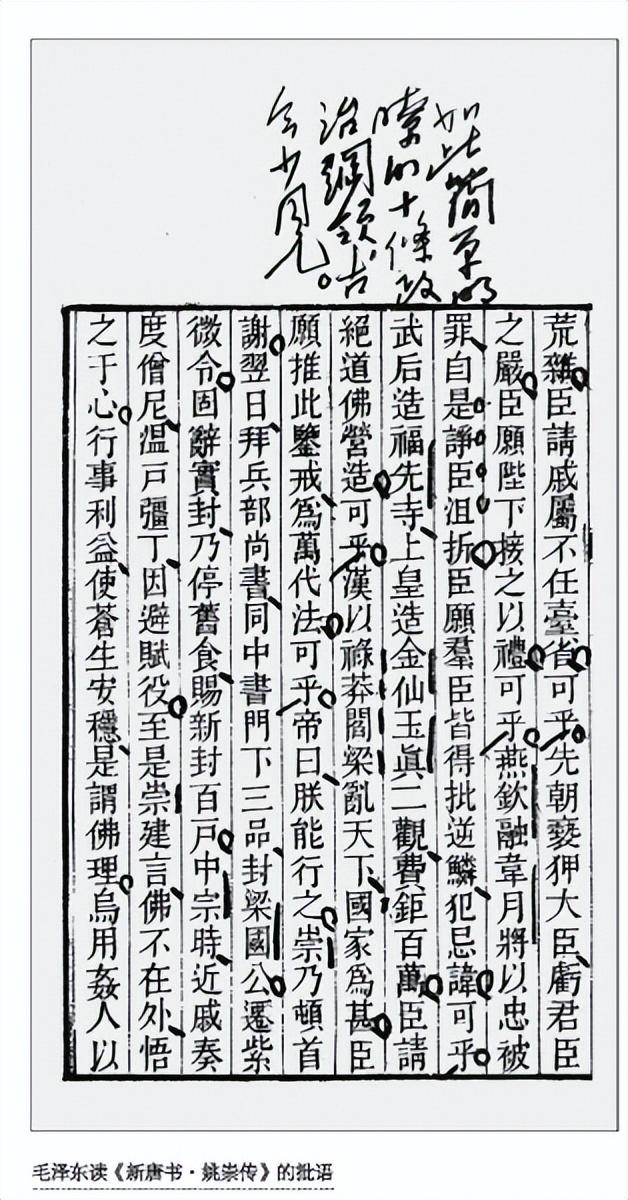 如此简单明
瞭的十條政
治綱領，古
今少見。
荒雜臣請戚屬不任臺省可乎先朝褻狎大臣虧君臣
之嚴臣願陛下接之以禮可乎燕欽融韋月將以忠被
罪自是諍臣沮折臣願羣臣皆得批逆鱗犯忌諱可乎
武后造福先寺上皇造金仙玉眞二觀費鉅百萬臣請
絕道佛營造可乎漢以祿莽閻梁亂天下國家爲甚臣
願推此鑒戒爲萬代法可乎帝曰朕能行之崇乃頓首
謝翌日拜兵部尚書同中書門下三品封梁國公遷紫
微令固辭實封乃停舊食賜新封百戶中宗時近戚奏
度僧尼温戶彊丁因避賦役至是崇建言佛不在外悟
之于心行事利益使蒼生安穩是謂佛理烏用姦人以
毛泽东读《新唐书·姚崇传》的批语